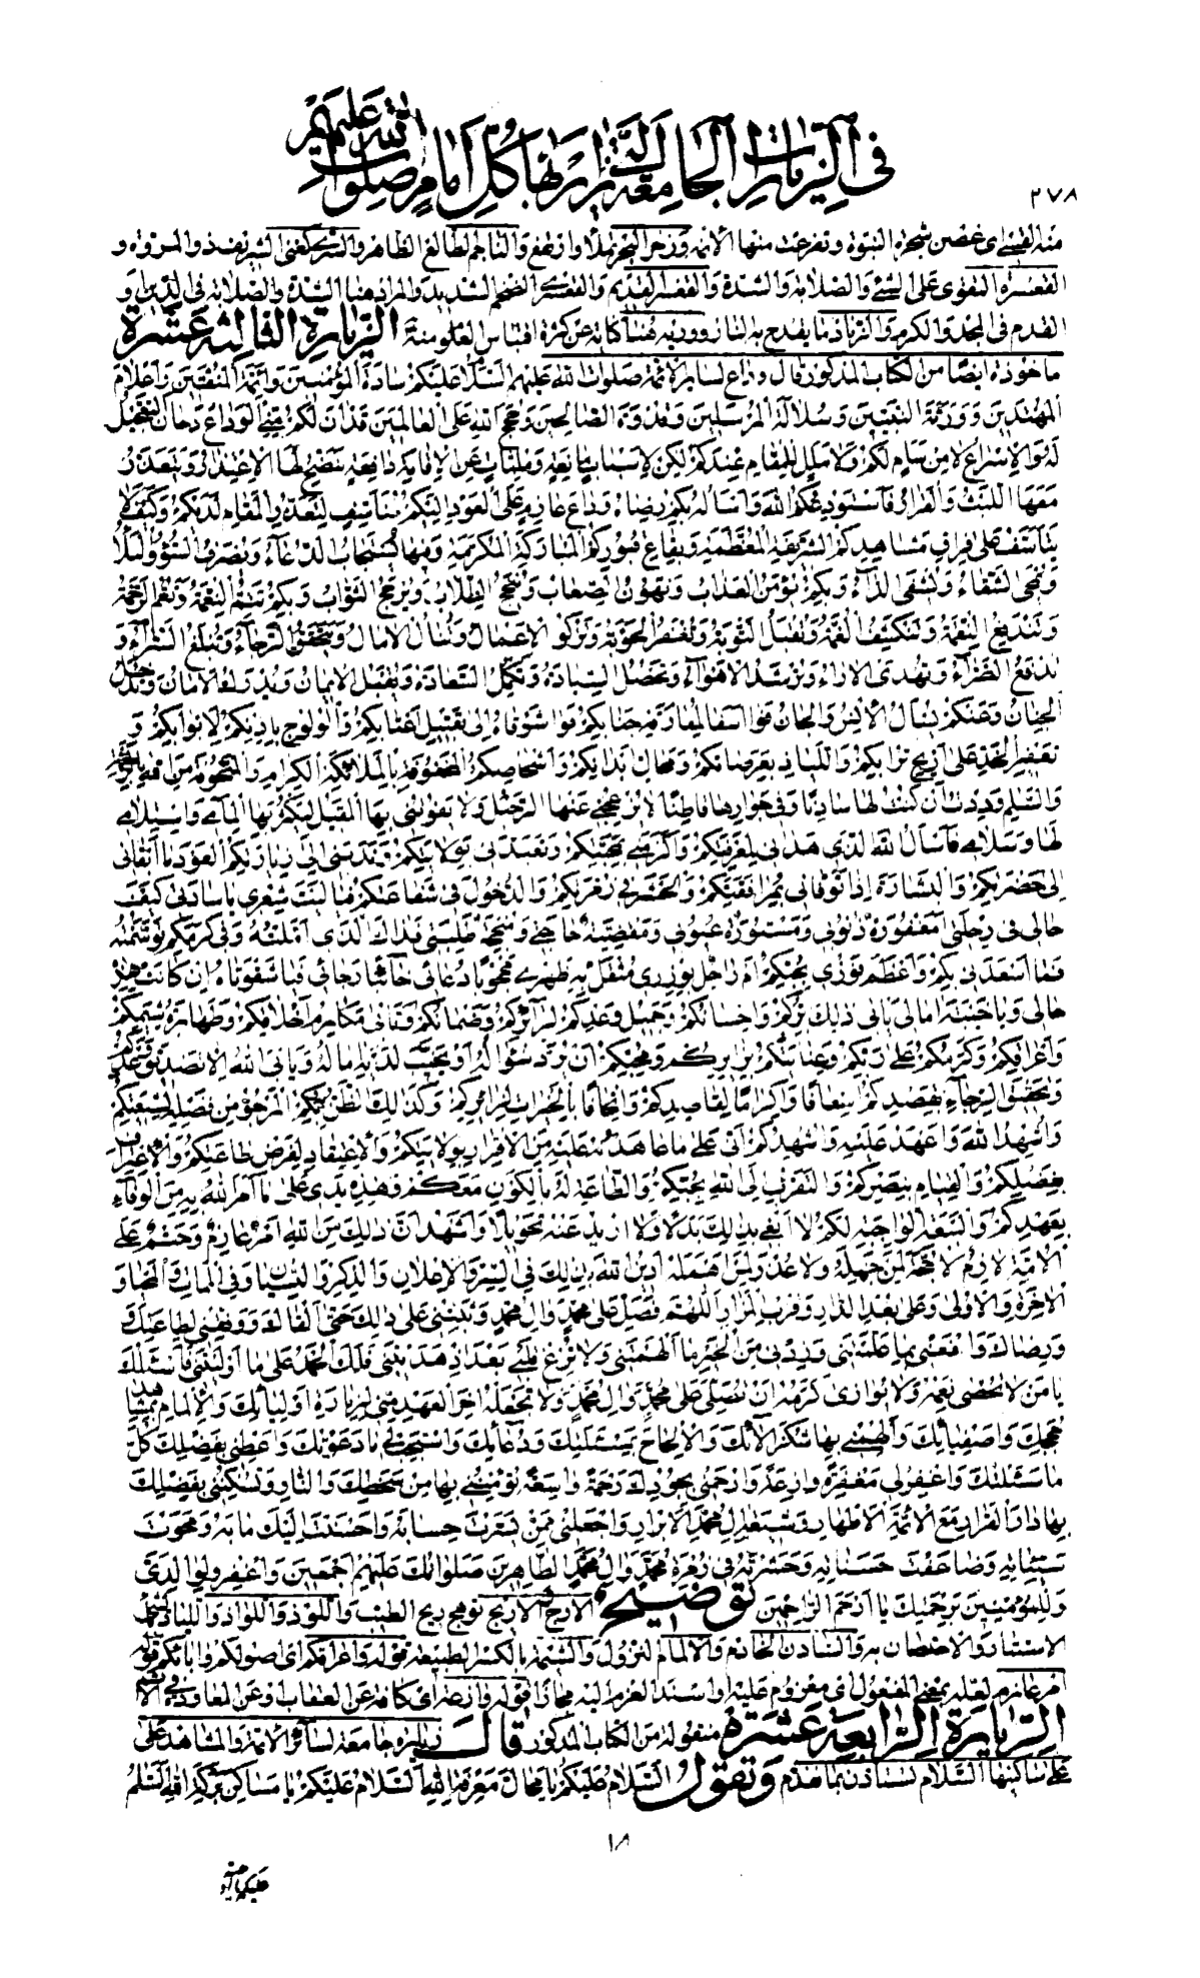 في الزيارات الجامعة التي يزار بها كل امام صلوات الله عليهم
٢٧٨
منه القبس اي غصن شجرة النبوة وتفرعت منها الائمة وزخر البحر مدا وارتفع والناجم الطالع الظاهر والسري كغني الشريف ذو المروة و
القسرة التقوى على الشيء والصلابة والشدة والقديم الضخم الشديد والمراد هنا الشدة والصلابة في الدين و
القدم في المجد والكرم والزناد ما يقدح به النار ووريه هنا كناية عن كثرة اقتباس العلوم منه الزيارة الثالثة عشرة
ماخوذة ايضا من الكتاب المذكور قال وداع لسائر الائمة صلوات الله عليهم السلام عليكم سادة المؤمنين وائمة المتقين واعلام
المهتدين وورثة النبيين وسلالة المرسلين وقدوة الصالحين وحجج الله على العالمين قد ان لكم مني الوداع وحان التعجيل
له والاسراع لا من سام لكم ولا ملل للمقام عندكم لكن لاسباب مانعة وملمات عن الاقامة دافعة يتضح لها الاعتذار ويتعذر
معها اللبث والقرار فاستودعكم الله واساله بكم رضاه وداع عازم على العود اليكم متاسف لتعذر المقام لديكم وكيف لا
يتاسف على فراق مشاهدكم الشريفة المعظمة وبقاع قبوركم المباركة المكرمة وبها يستجاب الدعاء ويصرف السوء والبلاء
ويمحى الشقاء ويشفى الداء وبكم نؤمن العذاب ويهون الصعاب وينجح الطلاب ويرجح الثواب وبكم تتم النعمة وتعم الرحمة
وتندفع النقمة وتنكشف الغمة وتقبل التوبة وتغفر الحوبة وتزكو الاعمال وتنال الامال ويتحقق الرجاء وتبلغ السراء و
تدفع الضراء وتهدى الاراء وترشد الاهواء وتحصل السيادة وتكمل السعادة ويقبل الايمان ويدرك الامان وتدخل
الجنان وعنكم يسأل الانس والجان فوا اسفا لمفارقة جنابكم ووا شوقاه الى تقبيل اعتابكم والولوج باذنكم لابوابكم و
تعفير الخد على اريج ترابكم واللياذ بعرصاتكم ومحال ابدانكم واشخاصكم المحفوفة بالملائكة الكرام والمتحوفة من الله بالرحمة
والسلم وددت ان كنت لها سادنا وفي جوارها قاطنا لا يزعجني عنها الرحيل ولا يفوتني بها المقيل ليكثر بها المامي واستلامي
لها وسلامي فاسأل الله الذي هداني لمعرفتكم واكرمني بمحبتكم وتعبدني بولايتكم وندبني الى زيارتكم العود ما ابقاني
الى حضرتكم والبشارة اذا توفاني بمرافقتكم والحشر في زمرتكم والدخول في شفاعتكم فيا ليت شعري يا سادتي كيف
حالي في رحلتي امغفورة ذنوبي ومستورة عيوبي ومقضية حوائجي ومنجحة طلبتي فذاك الذي املته وفي كرمكم توسمته
فما اسعدني بكم واعظم فوزي بحبكم ام راحل بوزري مثقل به ظهري محجوبا دعائي خائبا رجائي فيا شقوتاه ان كانت هذه
حالي ويا خيبة امالي يابى ذلك بركم واحسانكم وجميل وعدكم لزائركم وضمانكم وتابى مكارم اخلاقكم وطهارة شيمكم
واعراقكم وكرمكم على ربكم وعنايتكم بزائركم ومحبكم ان يرد سؤاله او يخيب لديه اماله ويابى الله الا تصديق وعدكم
وتحقيق الرجاء بقصدكم اسعافا واكراما لقاصدكم والحاقا بالخيرات لزائركم وكذلك الظن بكم المرجو من فضله لشيعتكم
واشهد الله واعهد عليه واشهدكم اني على ما عاهدته عليه من الاقرار بولايتكم والاعتقاد لفرض طاعتكم والاعتراف
بفضلكم والقيام بنصركم والتقرب الى الله بحبكم والطاعة له بالكون معكم وهذه يدي على ما امر الله به من الوفاء
بعهدكم والسعة الواجبة لكم لا ابغي بذلك بدلا ولا اريد عنه تحويلا واشهد ان ذلك من الله امر عازم وحتم على
الامة لازم لا حجة لمن جهله ولا عذر لمن اهمله ادين الله بذلك في السر والاعلان والذكر والنسيان وفي الممات والمحيا و
الاخرة والاولى وعلى بعد الدار وقرب المزار اللهم فصل على محمد وال محمد وثبتني على ذلك حتى القاك ووفقني لطاعتك
ورضاك وانفعني بما علمتني وزدني من الخير ما الهمتني ولا تزغ قلبي بعد اذ هديتني فلك الحمد على ما اوليتني فاسئلك
يا من لا تحصى نعمه ولا يوازى كرمه ان تصلي على محمد وال محمد ولا تجعله اخر العهد مني لزيارة اوليائك والالمام بمشاهد
حججك واصفيائك والهمني بها شكر الائك والالحاح بمسئلتك ودعائك واستجب لي ما دعوتك واعطني بفضلك كل
ما سئلتك واغفر لي مغفرة وازعة وارحمني بجودك رحمة واسعة تؤمنني بها من سخطك والنار وتسكنني بفضلك
بها دار القرار مع الائمة الاطهار وشيعة ال محمد الابرار واجعلني ممن يسرت حسابه واحسنت اليك مابه ومحوت
سيئاته وضاعفت حسناته وحشرته في زمرة محمد وال محمد الطاهرين صلواتك عليهم اجمعين واغفر لوالدي
وللمؤمنين برحمتك يا ارحم الراحمين توضيح الارج والاريج توهج ريح الطيب واللوذ واللواذ واللياذ
الاستتار والاحتصان به والسادن الخادم والالمام النزول والشيمة بالكسر الطبيعة قوله واعراقكم اي اصولكم وابائكم قوله
امر عازم لعله بمعنى المفعول اي معزوم عليه او اسند العزم اليه مجازا قوله وازعة اي كافة عن العقاب او عن المعاودة
الزيارة الرابعة عشرة منقولة من الكتاب المذكور قال زيارة جامعة لسائر الائمة والمشاهد على
على ساكنيها السلام تستاذن بما قدم وتقول السلام عليكم يا محال معرفة الله السلام عليكم يا مساكن بركة الله السلم
١٨
عليكم يا